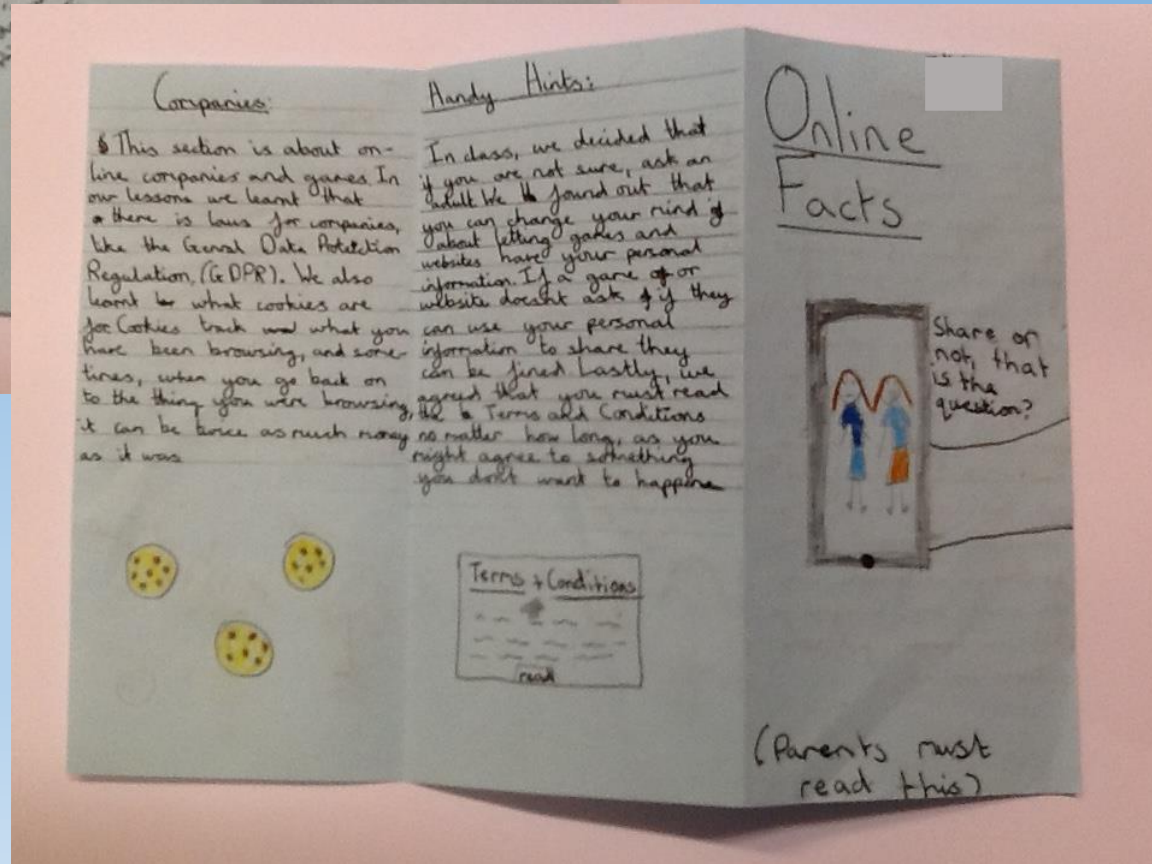 Companies:
This section is about on-
line companies and games. In
our lessons we learnt that
there is laws for companies,
like the Genral Data Protection
Regulation, (GDPR). We also
learnt what cookies are
for Cookies track what you
have been browsing, and some-
times, when you go back on
to the thing you were browsing,
it can be twice as much money
as it was
Handy Hints:
In class, we decided that
if you are not sure, ask an
adult. We found out that
you can change your mind
about letting games and
websites have your personal
information. If a game or
website doesnt ask if they
can use your personal
information to share they
can be fined. Lastly, we
agreed that you must read
the Terms and Conditions
no matter how long, as you
might agree to something
you don't want to happen
Terms + Conditions
read
Online
Facts
Share or
not, that
is the
question?
(Parents must
read this)